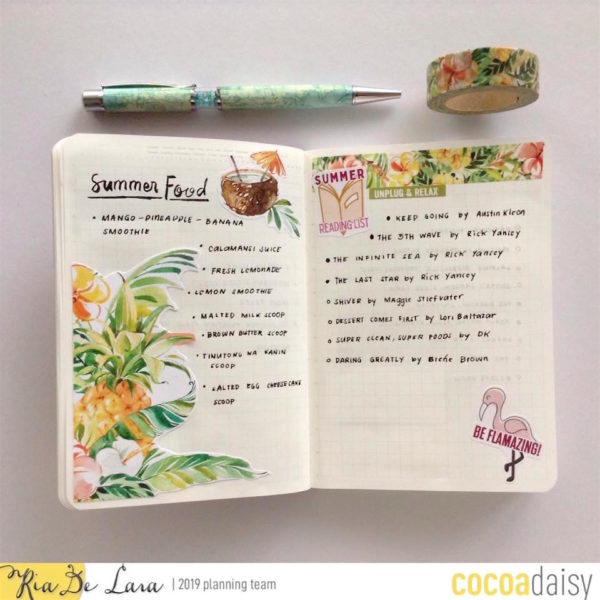 Summer Food
• MANGO-PINEAPPLE-BANANA
SMOOTHIE
• CALAMANSI JUICE
• FRESH LEMONADE
• LEMON SMOOTHIE
• MALTED MILK SCOOP
• BROWN BUTTER SCOOP
• TINUTONG NA KANIN
SCOOP
• SALTED EGG CHEESECAKE
SCOOP
SUMMER
READING LIST
UNPLUG & RELAX
• KEEP GOING by Austin Kleon
• THE 5TH WAVE by Rick Yancey
• THE INFINITE SEA by Rick Yancey
• THE LAST STAR by Rick Yancey
○ SHIVER by Maggie Stiefvater
○ DESSERT COMES FIRST by Lori Baltazar
○ SUPER CLEAN, SUPER FOODS by DK
○ DARING GREATLY by Brené Brown
BE FLAMAZING!
Ria De Lara | 2019 planning team
cocoadaisy